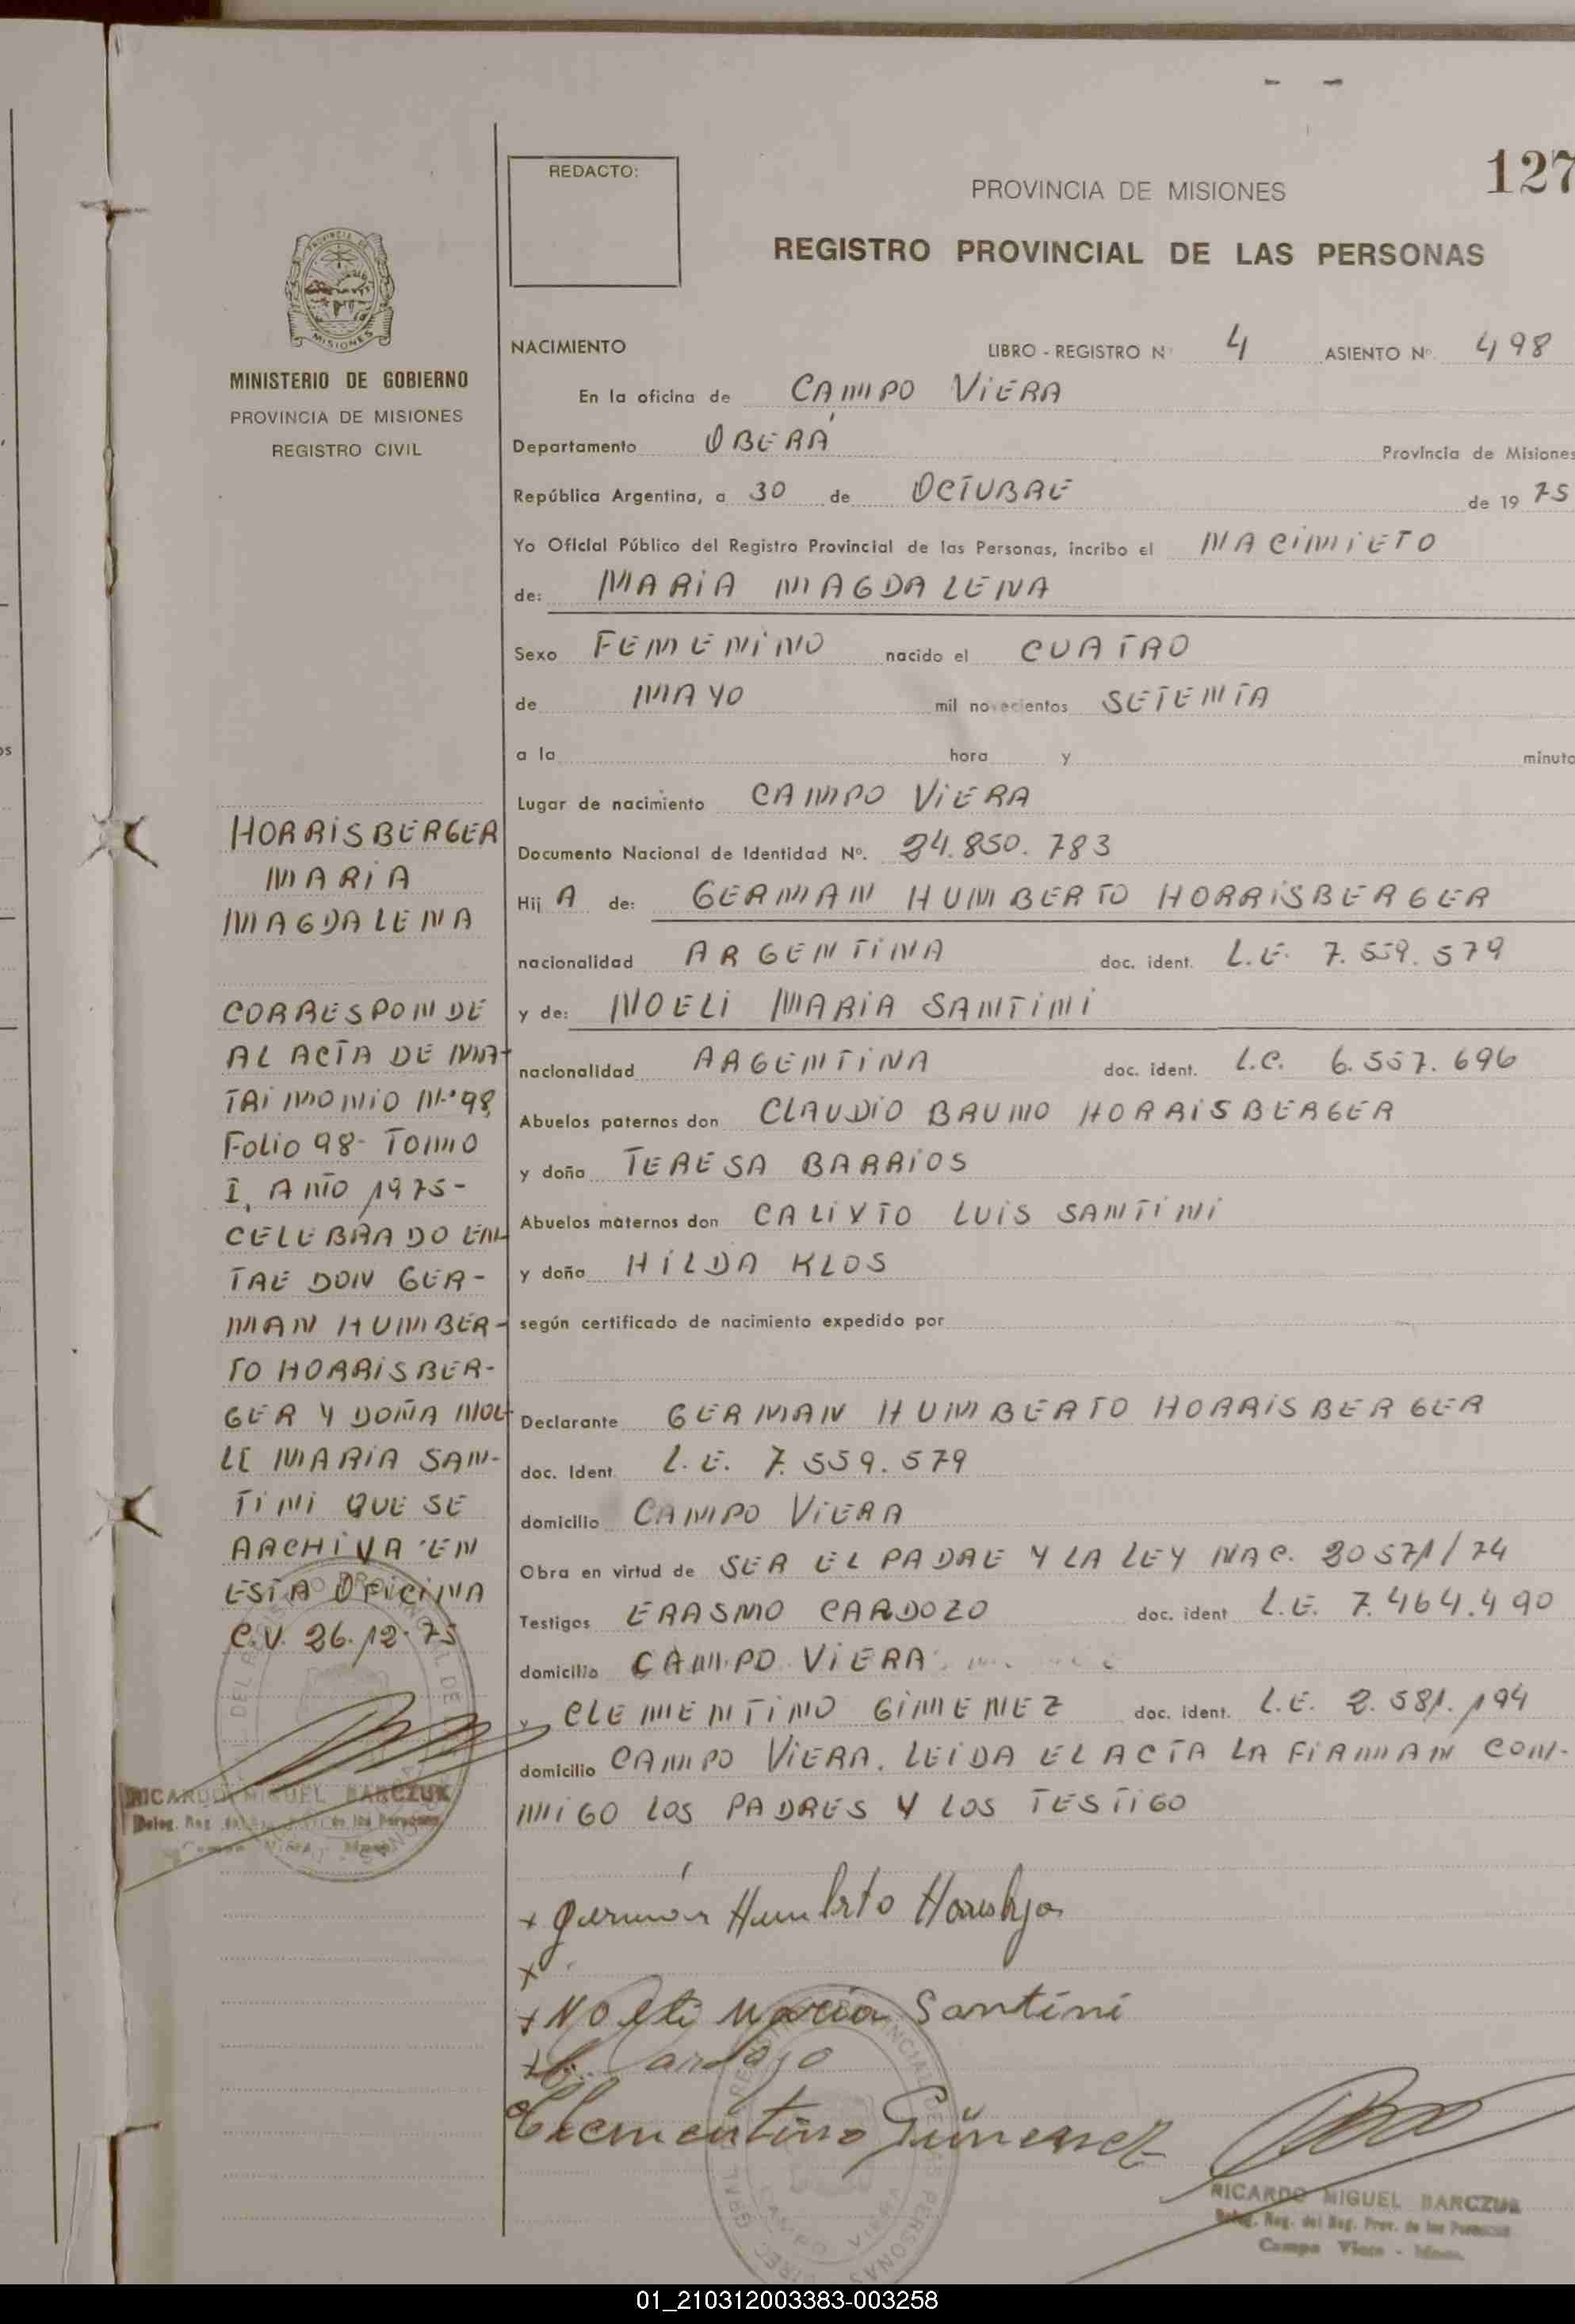 127
REDACTO:
PROVINCIA DE MISIONES
REGISTRO PROVINCIAL DE LAS PERSONAS
MINISTERIO DE GOBIERNO
PROVINCIA DE MISIONES
REGISTRO CIVIL
NACIMIENTO LIBRO - REGISTRO Nº 4 ASIENTO Nº 498
En la oficina de CAMPO VIERA
Departamento OBERÁ Provincia de Misiones
República Argentina, a 30 de OCTUBRE de 1975
Yo Oficial Público del Registro Provincial de las Personas, incribo el NACIMIETO
de: MARIA MAGDALENA
Sexo FEMENINO nacido el CUATRO
de MAYO mil novecientos SETENTA
a la hora y minuto
Lugar de nacimiento CAMPO VIERA
Documento Nacional de Identidad Nº. 24.850.783
Hij A de: GERMAN HUMBERTO HORRISBERGER
nacionalidad ARGENTINA doc. ident. L.E. 7.559.579
y de: NOELI MARIA SANTINI
nacionalidad ARGENTINA doc. ident. L.C. 6.557.696
Abuelos paternos don CLAUDIO BRUNO HORRISBERGER
y doña TERESA BARRIOS
Abuelos maternos don CALIXTO LUIS SANTINI
y doña HILDA KLOS
según certificado de nacimiento expedido por
Declarante GERMAN HUMBERTO HORRISBERGER
doc. Ident L.E. 7.559.579
domicilio CAMPO VIERA
Obra en virtud de SER EL PADRE Y LA LEY NAC. 20571/74
Testigos ERASMO CARDOZO doc. ident L.E. 7.464.490
domicilio CAMPO VIERA
y CLEMENTINO GIMENEZ doc. ident. L.E. 2.581.194
domicilio CAMPO VIERA. LEIDA EL ACTA LA FIRMAN CON-
MIGO LOS PADRES Y LOS TESTIGO
HORRISBERGER
MARIA
MAGDALENA
CORRESPONDE
AL ACTA DE MA-
TRIMONIO Nº 98
FOLIO 98- TOMO
I, AÑO 1975-
CELEBRADO EN-
TRE DON GER-
MAN HUMBER-
TO HORRISBER-
GER Y DOÑA NOE
LI MARIA SAN-
TINI QUE SE
ARCHIVA EN
ESTA OFICINA
C.V. 26.12.75
RICARDO MIGUEL BARCZUK
Deleg. Reg. de las Personas
+ Germán Humbrto
x
+ Noeli Maria Santini
+ Cardozo
Clementino Gimenez
RICARDO MIGUEL BARCZUK
Deleg. Reg. del Reg. Prov. de las Personas
Campo Viera - Mnes.
01_210312003383-003258